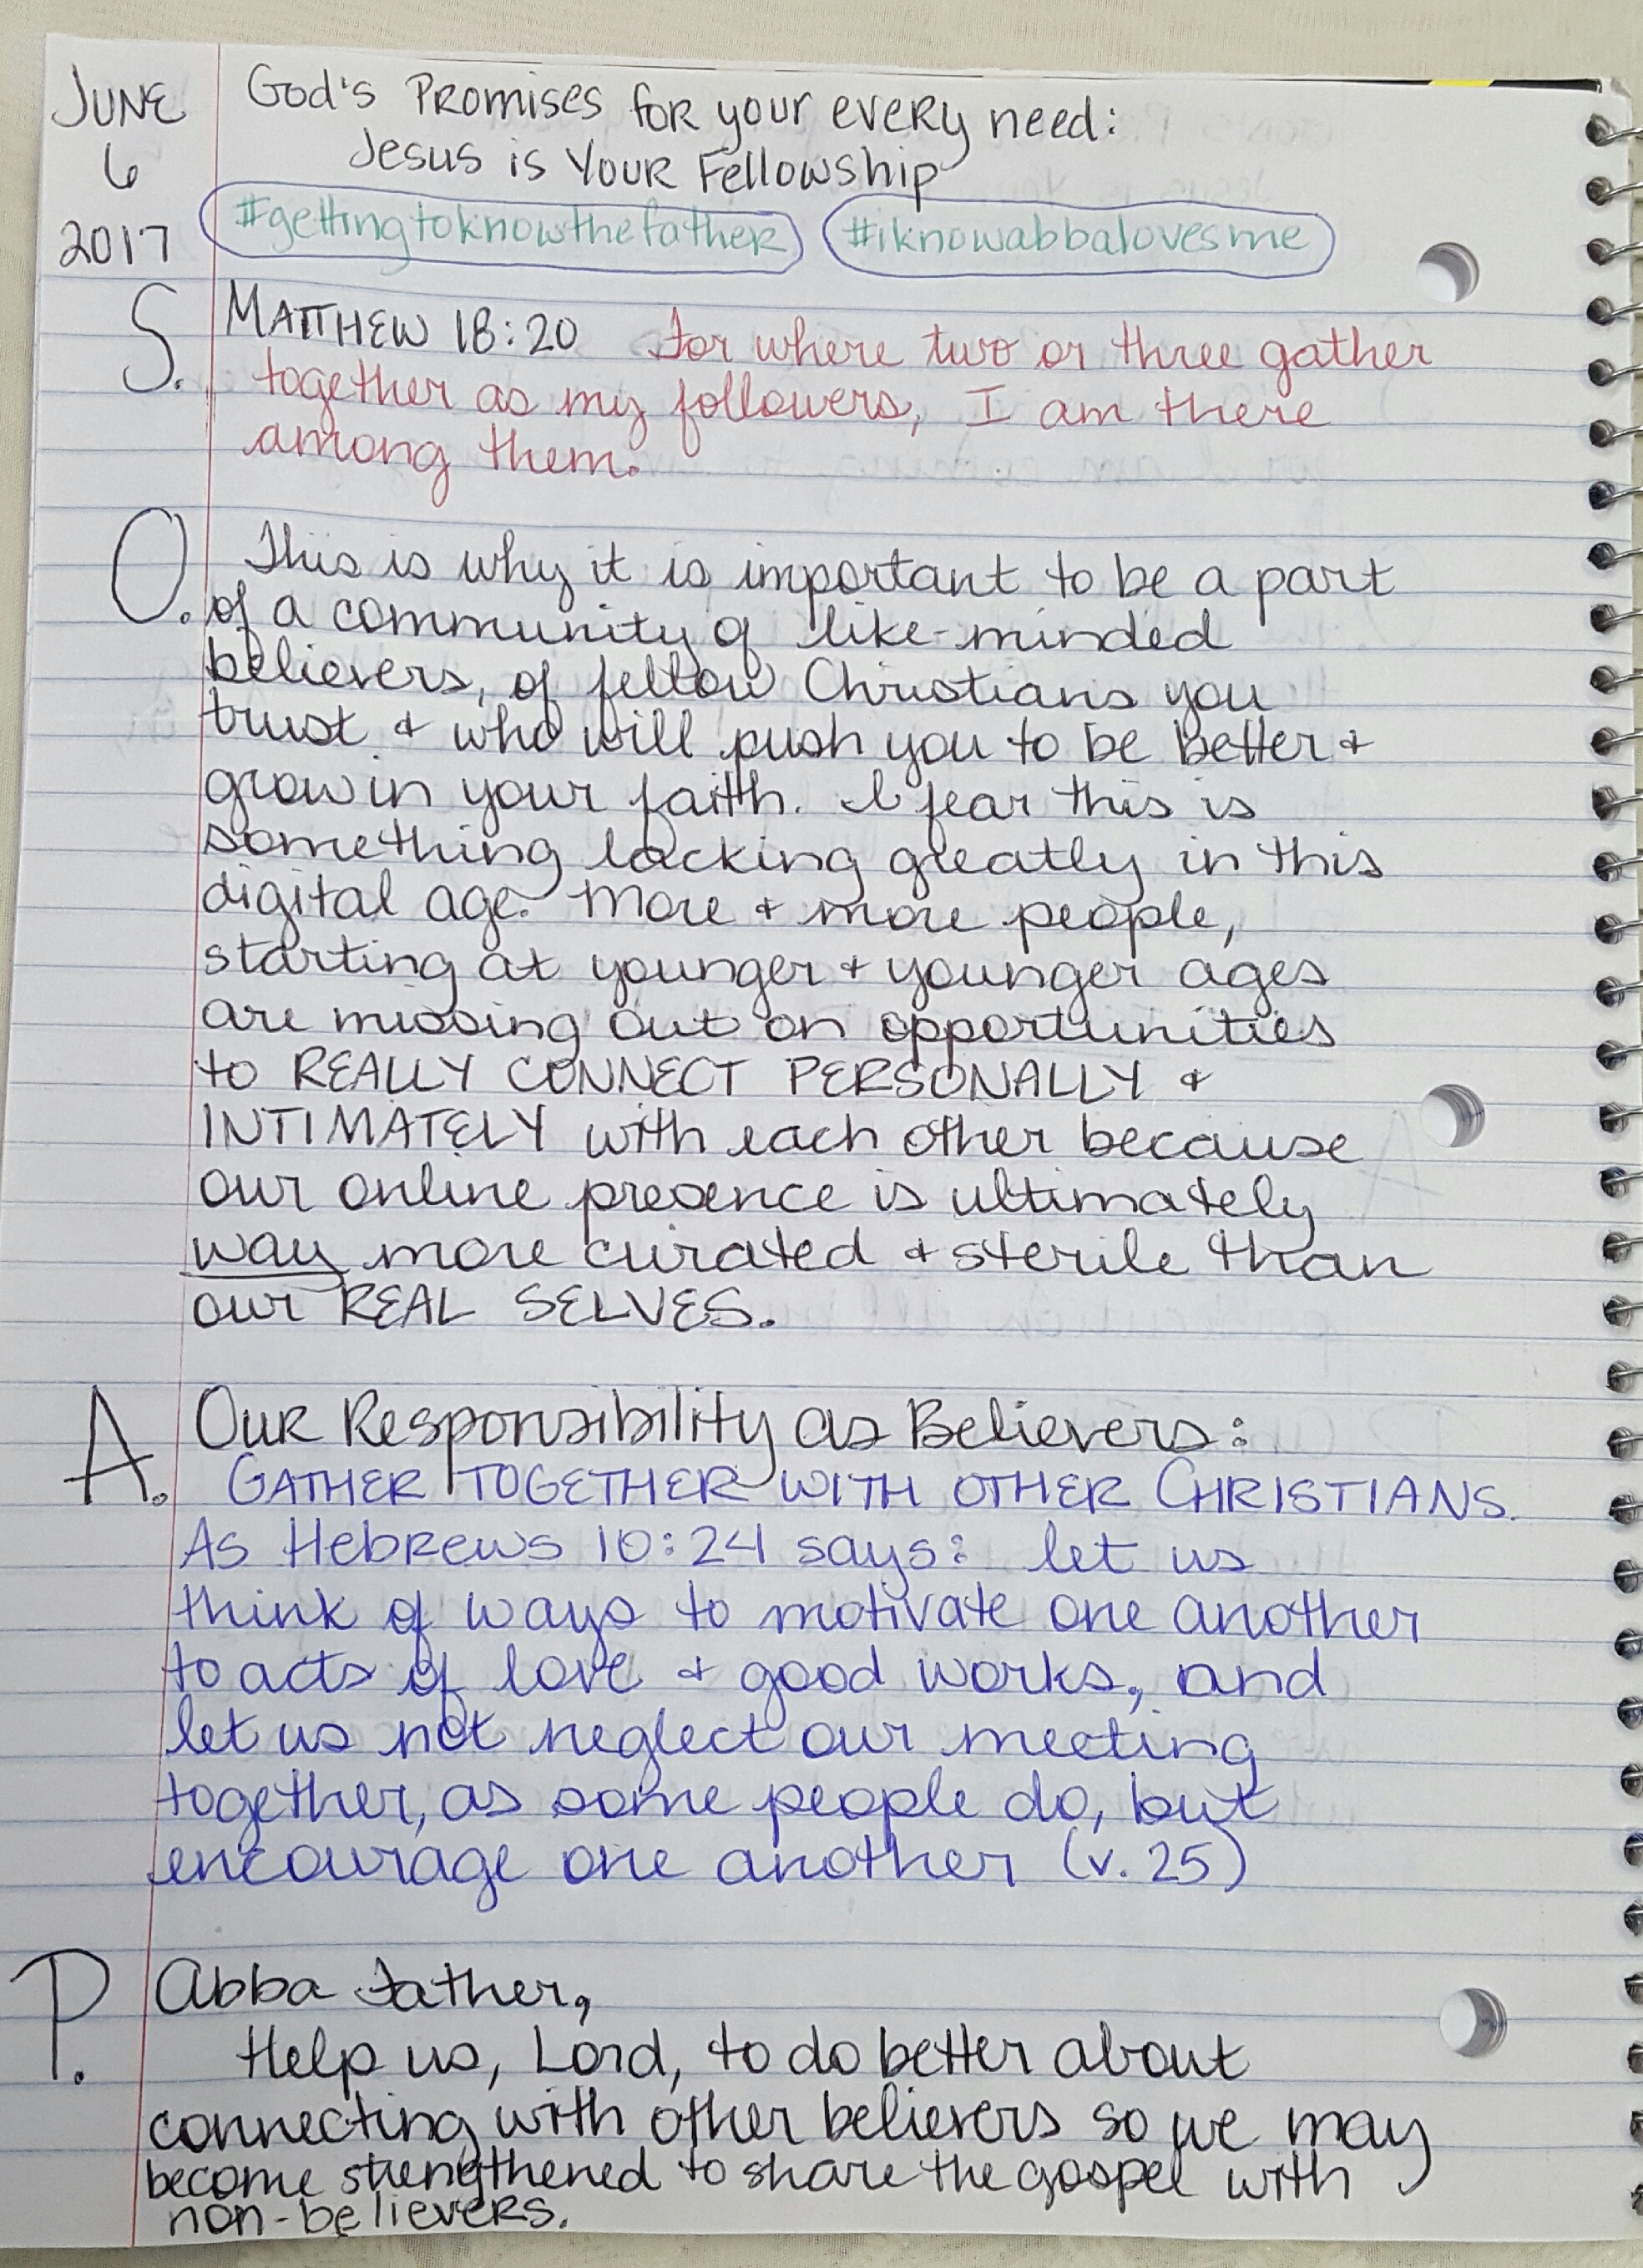 JUNE
6
2017
God's Promises for your every need:
Jesus is Your Fellowship
#gettingtoknowthefather #iknowabbalovesme
S. MATTHEW 18:20 For where two or three gather
together as my followers, I am there
among them.
O. This is why it is important to be a part
of a community of like-minded
believers, of fellow Christians you
trust & who will push you to be better &
grow in your faith. I fear this is
something lacking greatly in this
digital age. More & more people,
starting at younger & younger ages
are missing out on opportunities
to REALLY CONNECT PERSONALLY &
INTIMATELY with each other because
our online presence is ultimately
way more curated & sterile than
our REAL SELVES.
A. Our Responsibility as Believers:
GATHER TOGETHER WITH OTHER CHRISTIANS.
As Hebrews 10:24 says: let us
think of ways to motivate one another
to acts of love & good works, and
let us not neglect our meeting
together, as some people do, but
encourage one another (v. 25)
P. Abba Father,
Help us, Lord, to do better about
connecting with other believers so we may
become strengthened to share the gospel with
non-believers.